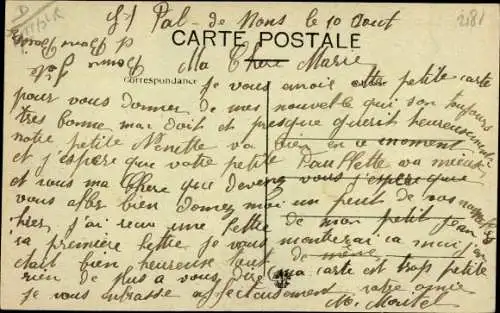 St Pal-de Mons le 10 Aout
CARTE POSTALE
Ma Chere Marie
Correspondance
Je vous envoie cette petite carte
pour vous donner de mes nouvelle qui son toujours
tres bonne mai doit et presque guerit heureusement
notre petite Nenette va bien en ce moment
et j'espere que votre petite Paullette va mieux
et vous ma Chere que devenez vous j'espere que
vous allez bien donnez moi un peut de vos nouvelles
j'ai recu une lettre de mon petit Jean
sa premiere lettre je vous montrerai ca moi j'en
etait bien heureuse tout de meme
rien de plus a vous dire ma carte et trop petite
je vous embrasse affectueusement votre amie
M.